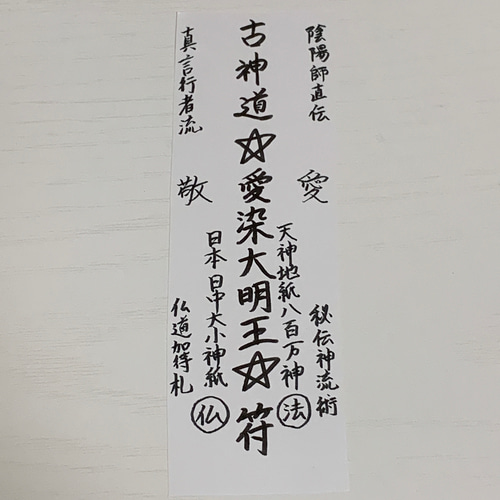 陰陽師直伝
愛
秘伝神流術
天神地紙八百万神
法
古神道☆愛染大明王☆符
日本日中大小神紙
仏
真言行者流
敬
仏道加待札